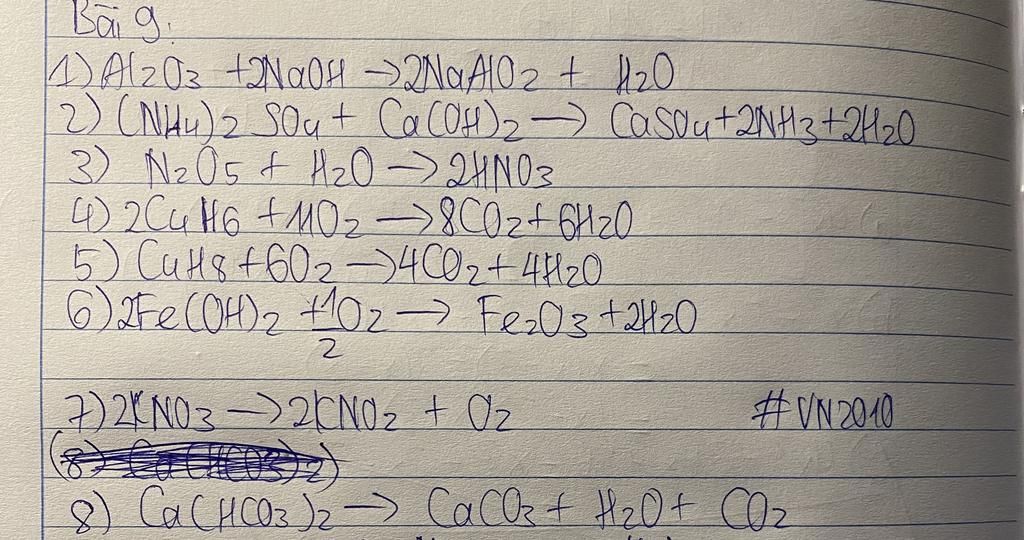 Bài 9:
1) Al2O3 + 2NaOH → 2NaAlO2 + H2O
2) (NH4)2 SO4 + Ca(OH)2 → CaSO4 + 2NH3 + 2H2O
3) N2O5 + H2O → 2HNO3
4) 2C4H6 + 11O2 → 8CO2 + 6H2O
5) C4H8 + 6O2 → 4CO2 + 4H2O
6) 2Fe(OH)2 + 1/2 O2 → Fe2O3 + 2H2O
7) 2KNO3 → 2KNO2 + O2 #VN2010
8) Ca(HCO3)2 → CaCO3 + H2O + CO2